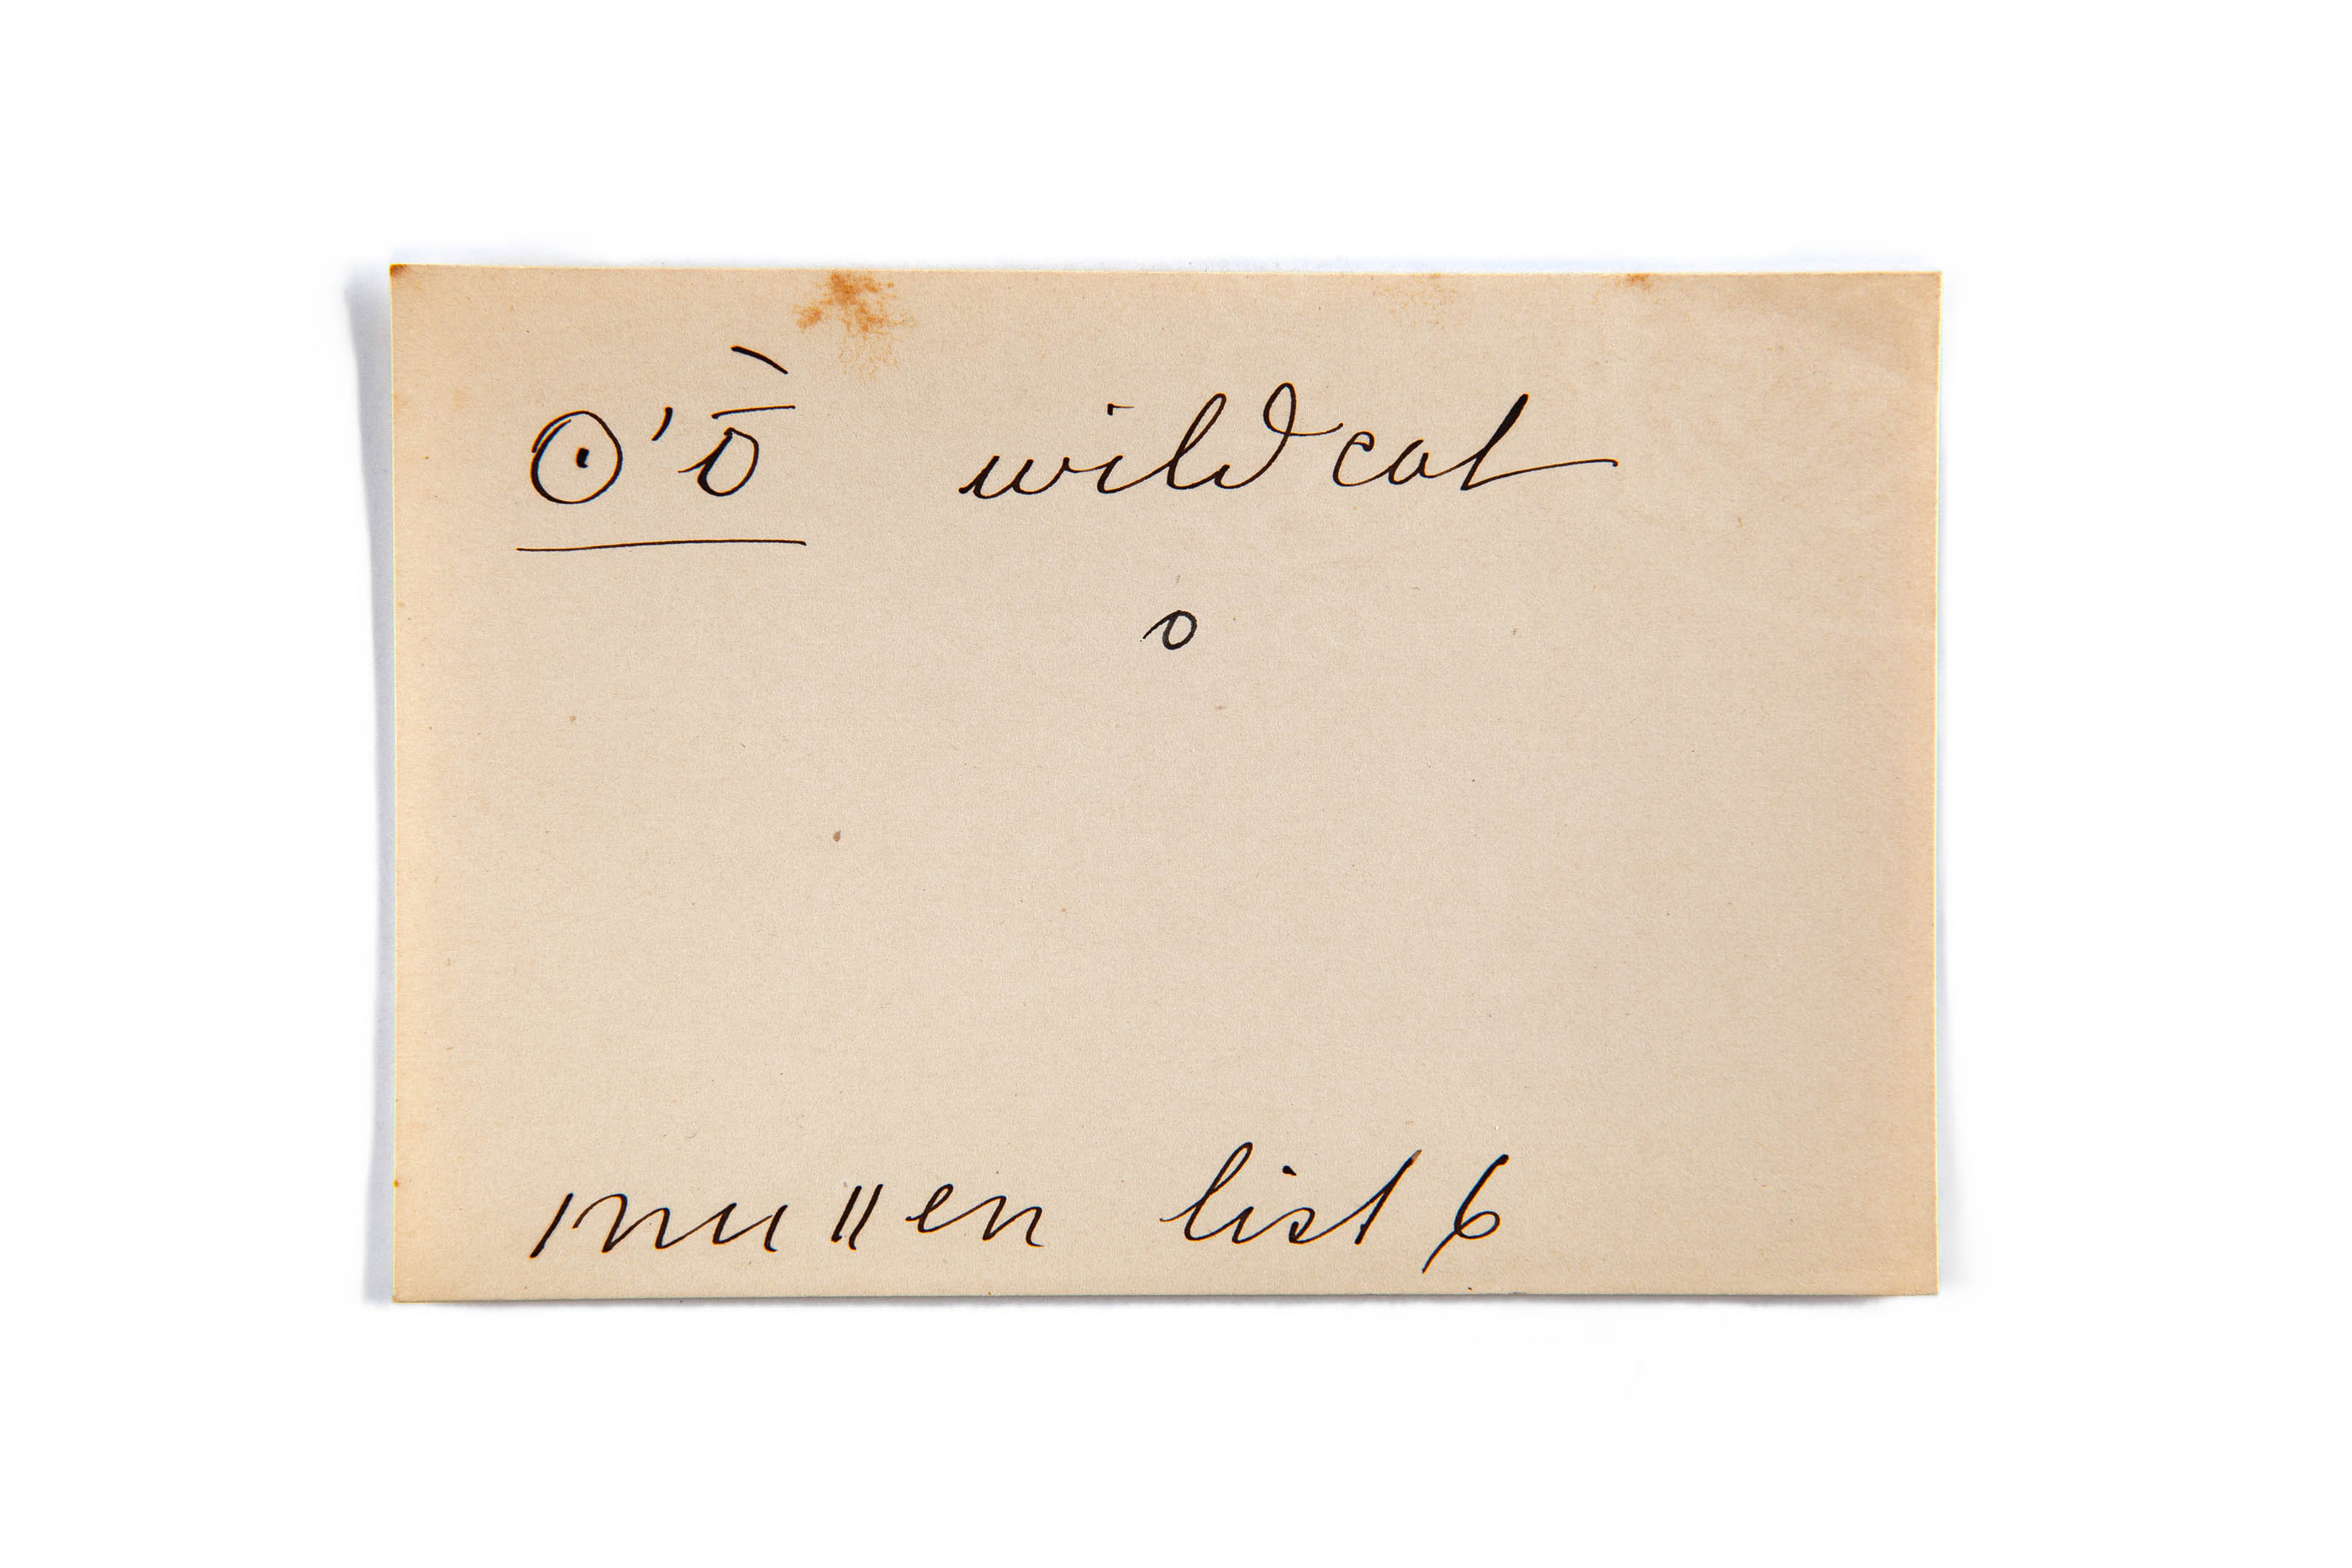 ʘ'ṑ wildcat
o
mullen list 6